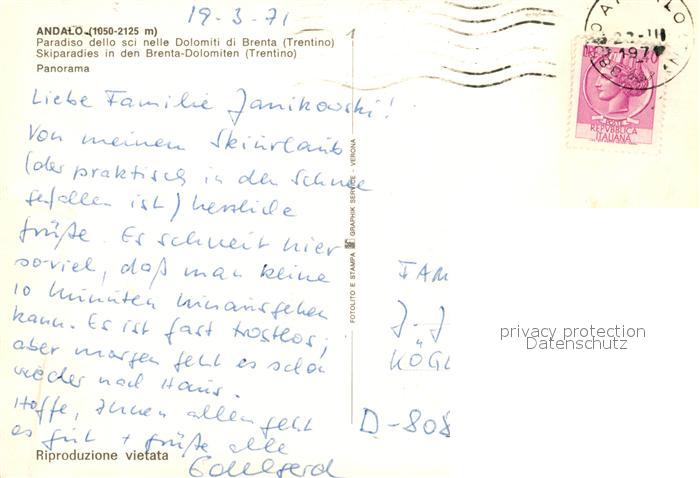 19-3-71
ANDALO (1050-2125 m)
Paradiso dello sci nelle Dolomiti di Brenta (Trentino)
Skiparadies in den Brenta-Dolomiten (Trentino)
Panorama
Liebe Familie Janikowski!
Von meinem Skiurlaub
(der praktisch in den Schnee
gefallen ist) herzliche
Grüße. Es schneit hier
soviel, daß man keine
10 Minuten hinausgehen
kann. Es ist fast trostlos;
aber morgen geht es schon
wieder nach Haus.
Hoffe, Ihnen allen geht
es gut + grüße alle
Edelgard
Riproduzione vietata
FOTOLITO E STAMPA GRAPHIK SERVICE - VERONA
1971
POSTE
REPVBBLICA
ITALIANA
FAM
J. J
KÖGL
D-808
privacy protection
Datenschutz